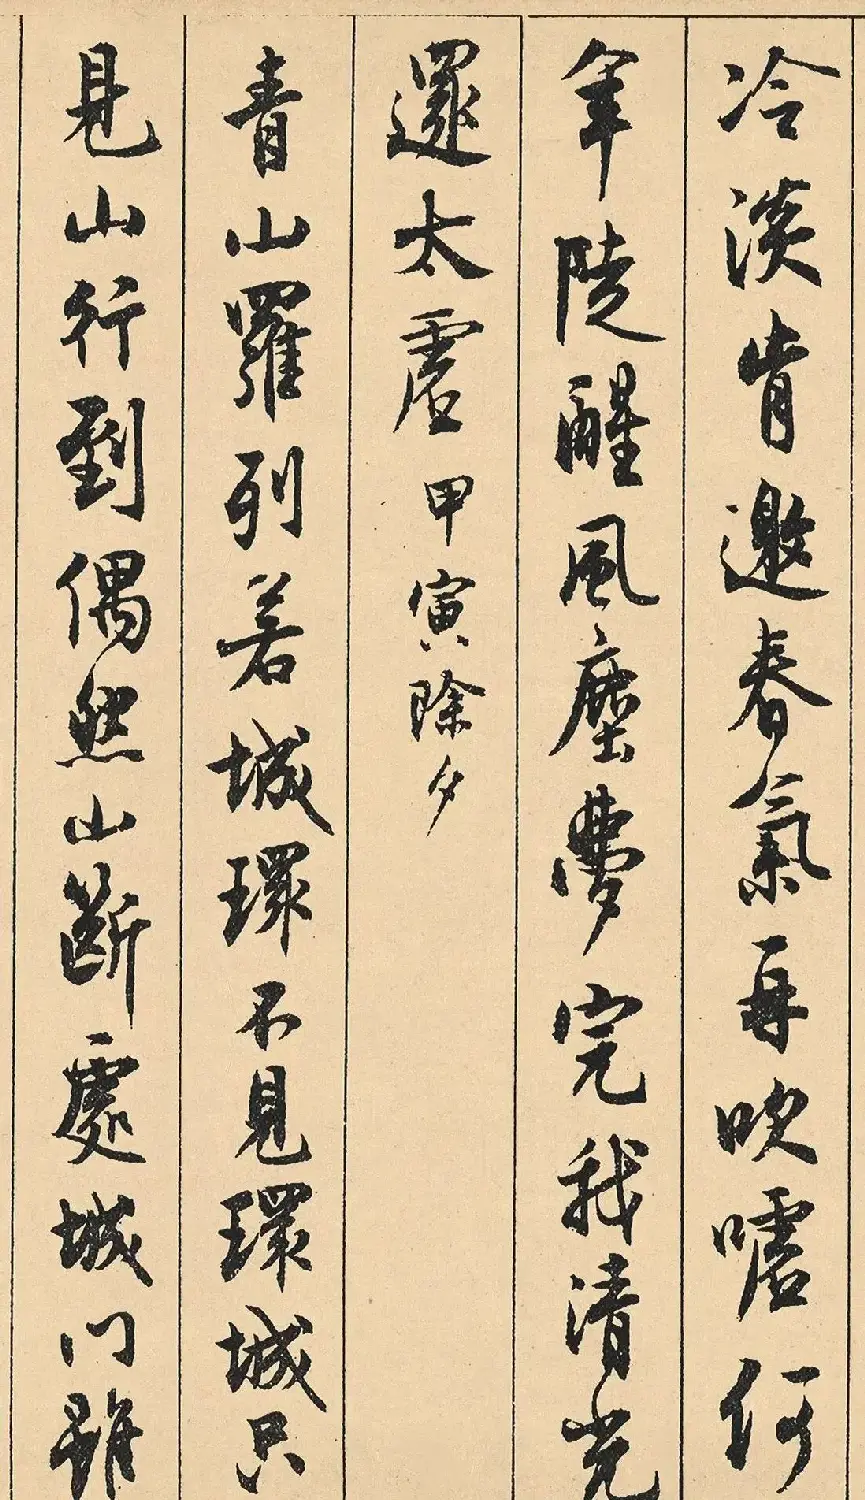 冷淡肯邀春氣再吹噓何
年陡醒風塵夢完我清光
還太虛甲寅除夕
青山羅列若城環不見環城只
見山行到偶然山斷處城門雖